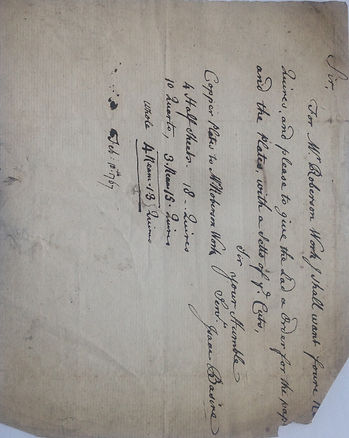 Sir,
For Mr. Roberson Work I Shall want foure
Quires, and please to give the Lad a Order for the pap
and the Plates, with a Setts of ye. Cuts,
Sir Your Humble
Servt.
Isaac Basire
Copper Plates to Mr Roberson Work
4 Half Sheets 18 - Quires
10 Quarto, 3 Ream 15 Quires
Whole 4 Ream 13 Quires
Feb: